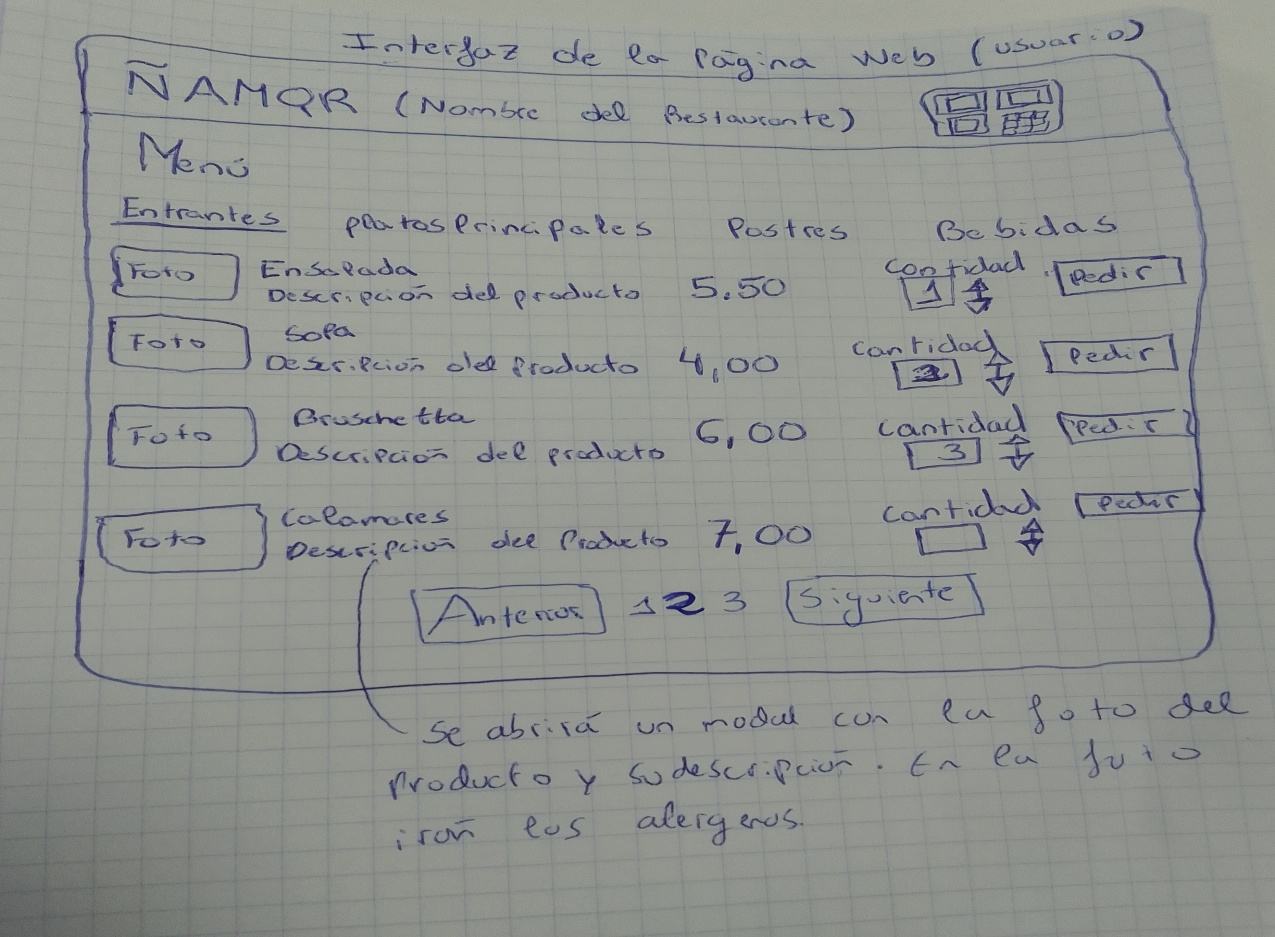 Interfaz de la Página Web (usuario)
ÑAMQR (Nombre del Restaurante)
Menú
Entrantes Platos Principales Postres Bebidas
Foto Ensalada Descripción del producto 5.50 Cantidad 1 Pedir
Foto Sopa Descripción del Producto 4,00 Cantidad 2 Pedir
Foto Bruschetta Descripción del producto 6,00 Cantidad 3 Pedir
Foto Calamares Descripción del Producto 7,00 Cantidad Pedir
Anterior 1 2 3 Siguiente
Se abrirá un modal con la foto del
Producto y su descripción. En la foto
irán los alergenos.